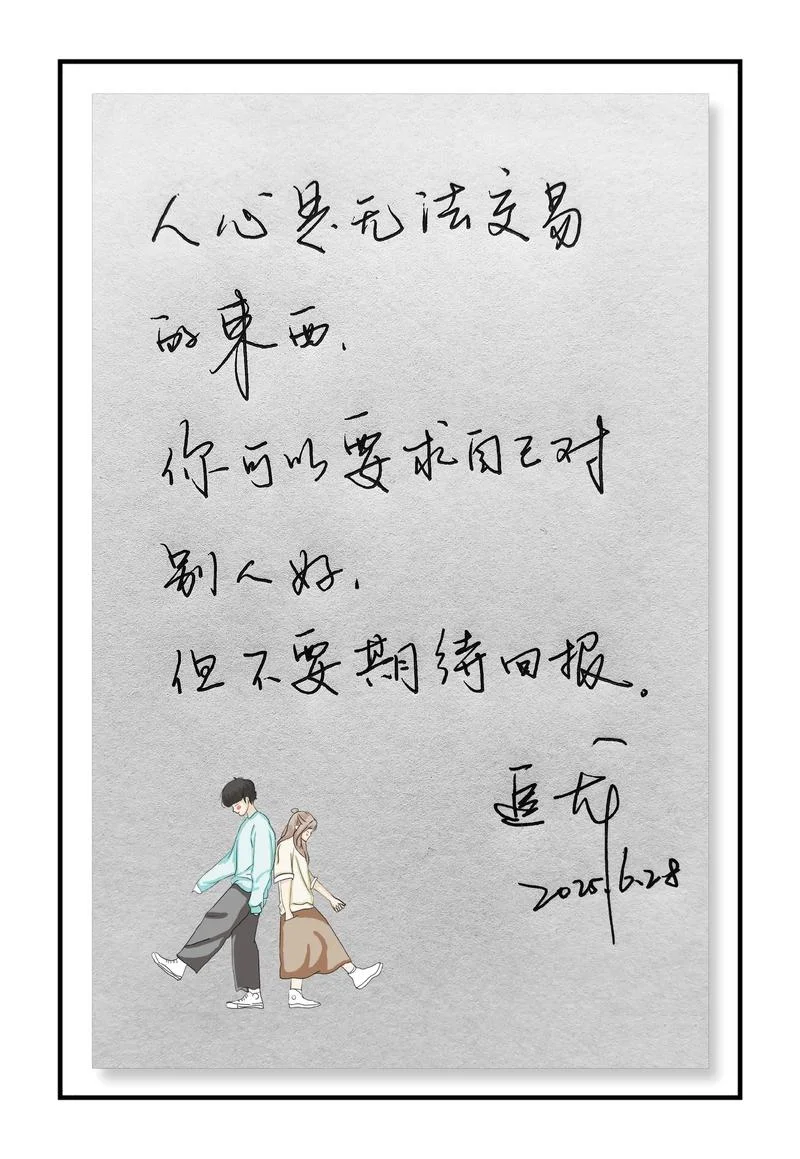 人心是无法交易
的東西.
你可以要求自己对
别人好.
但不要期待回报。
2025.6.28